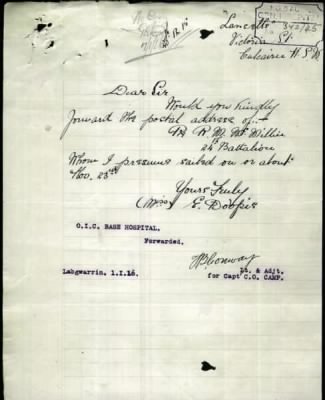 Lancelot
Victoria St
N S W
342/25
Dear Sir
Would you kindly
forward the postal address of :-
R M McMillin
24th Battalion
Whom I presume sailed on or about
Nov. 23rd
Yours Truly
(Miss) E.
O.I.C. BASE HOSPITAL.
Forwarded.
Lt. & Adjt.
Langwarrin, 1.1.16. for Capt C.O. CAMP.